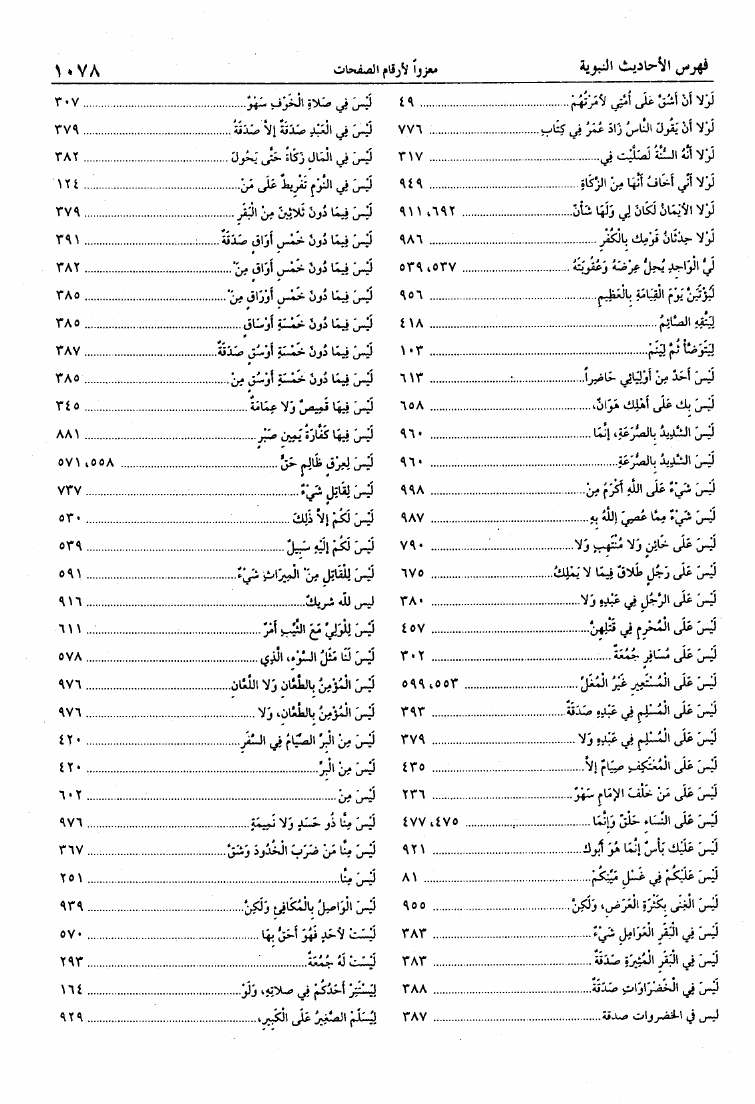 فهرس الأحاديث النبوية
معزواً لأرقام الصفحات
١٠٧٨
لَوْلا أَنْ أَشُقَّ عَلَى أُمَّتِي لأَمَرْتُهُمْ ٤٩
لَوْلا أَنْ يَقُولَ النَّاسُ زَادَ عُمَرُ فِي كِتَابِ ٧٧٦
لَوْلا أَنَّهُ السُّنَّةُ لَصَلَّيْت فِي ٣١٧
لَوْلا أَنِّي أَخَافُ أَنَّهَا مِنَ الزَّكَاةِ ٩٤٩
لَوْلا الأَيْمَانُ لَكَانَ لِي وَلَهَا شَأْنٌ ٦٩٢، ٩١١
لَوْلا حِدْثَانُ قَوْمِك بِالْكُفْرِ ٩٨٦
لَيُّ الْوَاجِدِ يُحِلُّ عِرْضَهُ وَعُقُوبَتَهُ ٥٣٧، ٥٣٩
لَيُؤْتَيَنَّ يَوْمَ الْقِيَامَةِ بِالْعَظِيمِ ٩٥٦
لِيَتَّقِهِ الصَّائِمُ ٤١٨
لِيَتَوَضَّأْ ثُمَّ لِيَنَمْ ١٠٣
لَيْسَ أَحَدٌ مِنْ أَوْلِيَائِي حَاضِراً ٦١٣
لَيْسَ بِك عَلَى أَهْلِك هَوَانٌ، ٦٥٨
لَيْسَ الشَّدِيدُ بِالصُّرَعَةِ، إِنَّمَا ٩٦٠
لَيْسَ الشَّدِيدُ بِالصُّرَعَةِ ٩٦٠
لَيْسَ شَيْءٌ عَلَى اللَّهِ أَكْرَمَ مِنْ ٩٩٨
لَيْسَ شَيْءٌ مِمَّا عُصِيَ اللَّهُ بِهِ ٩٨٧
لَيْسَ عَلَى خَائِنٍ وَلا مُنْتَهِبٍ وَلا ٧٩٠
لَيْسَ عَلَى رَجُلٍ طَلاقٌ فِيمَا لا يَمْلِكُ ٦٧٥
لَيْسَ عَلَى الرَّجُلِ فِي عَبْدِهِ وَلا ٣٨٠
لَيْسَ عَلَى الْمُحْرِمِ فِي قَتْلِهِنَّ ٤٥٧
لَيْسَ عَلَى مُسَافِرٍ جُمُعَةٌ ٣٠٢
لَيْسَ عَلَى الْمُسْتَعِيرِ غَيْرُ الْمُغِلِّ ٥٥٣، ٥٩٩
لَيْسَ عَلَى الْمُسْلِمِ فِي عَبْدِهِ صَدَقَةٌ ٣٩٣
لَيْسَ عَلَى الْمُسْلِمِ فِي عَبْدِهِ وَلا ٣٧٩
لَيْسَ عَلَى الْمُعْتَكِفِ صِيَامٌ إِلاَّ ٤٣٥
لَيْسَ عَلَى مَنْ خَلْفَ الإِمَامِ سَهْوٌ ٢٣٦
لَيْسَ عَلَى النِّسَاءِ حَلْقٌ وَإِنَّمَا ٤٧٥، ٤٧٧
لَيْسَ عَلَيْك بَأْسٌ إِنَّمَا هُوَ أَبُوك ٩٢١
لَيْسَ عَلَيْكُمْ فِي غَسْلِ مَيِّتِكُمْ ٨١
لَيْسَ الْغِنَى بِكَثْرَةِ الْعَرَضِ، وَلَكِنْ ٩٥٥
لَيْسَ فِي الْبَقَرِ الْعَوَامِلِ شَيْءٌ ٣٨٣
لَيْسَ فِي الْبَقَرِ الْمُثِيرَةِ صَدَقَةٌ ٣٨٣
لَيْسَ فِي الْخَضْرَاوَاتِ صَدَقَةٌ ٣٨٨
ليس في الخضروات صدقة ٣٨٧
لَيْسَ فِي صَلاةِ الْخَوْفِ سَهْوٌ ٣٠٧
لَيْسَ فِي الْعَبْدِ صَدَقَةٌ إِلاَّ صَدَقَةُ ٣٧٩
لَيْسَ فِي الْمَالِ زَكَاةٌ حَتَّى يَحُولَ ٣٨٢
لَيْسَ فِي النَّوْمِ تَفْرِيطٌ عَلَى مَنْ ١٢٤
لَيْسَ فِيمَا دُونَ ثَلاثِينَ مِنْ الْبَقَرِ ٣٧٩
لَيْسَ فِيمَا دُونَ خَمْسِ أَوَاقٍ صَدَقَةٌ ٣٩١
لَيْسَ فِيمَا دُونَ خَمْسِ أَوَاقٍ مِنْ ٣٨٢
لَيْسَ فِيمَا دُونَ خَمْسِ أَوْرَاقٍ مِنْ ٣٨٥
لَيْسَ فِيمَا دُونَ خَمْسَةِ أَوْسَاقٍ ٣٨٥
لَيْسَ فِيمَا دُونَ خَمْسَةِ أَوْسُقٍ صَدَقَةٌ ٣٨٧
لَيْسَ فِيمَا دُونَ خَمْسَةِ أَوْسُقٍ مِنْ ٣٨٥
لَيْسَ فِيهَا قَمِيصٌ وَلا عِمَامَةٌ ٣٤٥
لَيْسَ فِيهَا كَفَّارَةٌ يَمِينِ صَبْرٍ ٨٨١
لَيْسَ لِعِرْقٍ ظَالِمٍ حَقٌّ ٥٥٨، ٥٧١
لَيْسَ لِقَاتِلٍ شَيْءٌ ٧٣٧
لَيْسَ لَكُمْ إِلاَّ ذَلِكَ ٥٣٠
لَيْسَ لَكُمْ إِلَيْهِ سَبِيلٌ ٥٣٩
لَيْسَ لِلْقَاتِلِ مِنْ الْمِيرَاثِ شَيْءٌ ٥٩١
ليس لله شريك ٩١٦
لَيْسَ لِلْوَلِيِّ مَعَ الثَّيِّبِ أَمْرٌ ٦١١
لَيْسَ لَنَا مَثَلُ السَّوْءِ، الَّذِي ٥٧٨
لَيْسَ الْمُؤْمِنُ بِالطَّعَّانِ وَلا اللَّعَّانِ ٩٧٦
لَيْسَ الْمُؤْمِنُ بِالطَّعَّانِ، وَلا ٩٧٦
لَيْسَ مِنْ الْبِرِّ الصِّيَامُ فِي السَّفَرِ ٤٢٠
لَيْسَ مِنْ الْبِرِّ ٤٢٠
لَيْسَ مِنْ ٦٠٢
لَيْسَ مِنَّا ذُو حَسَدٍ وَلا نَمِيمَةٍ ٩٧٦
لَيْسَ مِنَّا مَنْ ضَرَبَ الْخُدُودَ وَشَقَّ ٣٦٧
لَيْسَ مِنَّا ٢٥١
لَيْسَ الْوَاصِلُ بِالْمُكَافِئِ وَلَكِنْ ٩٣٩
لَيْسَتْ لأَحَدٍ فَهُوَ أَحَقُّ بِهَا ٥٧٠
لَيْسَتْ لَهُ جُمُعَةٌ ٢٩٣
لِيَسْتَتِرْ أَحَدُكُمْ فِي صلاتِهِ، وَلَوْ ١٦٤
لِيُسَلِّمْ الصَّغِيرُ عَلَى الْكَبِيرِ، ٩٢٩